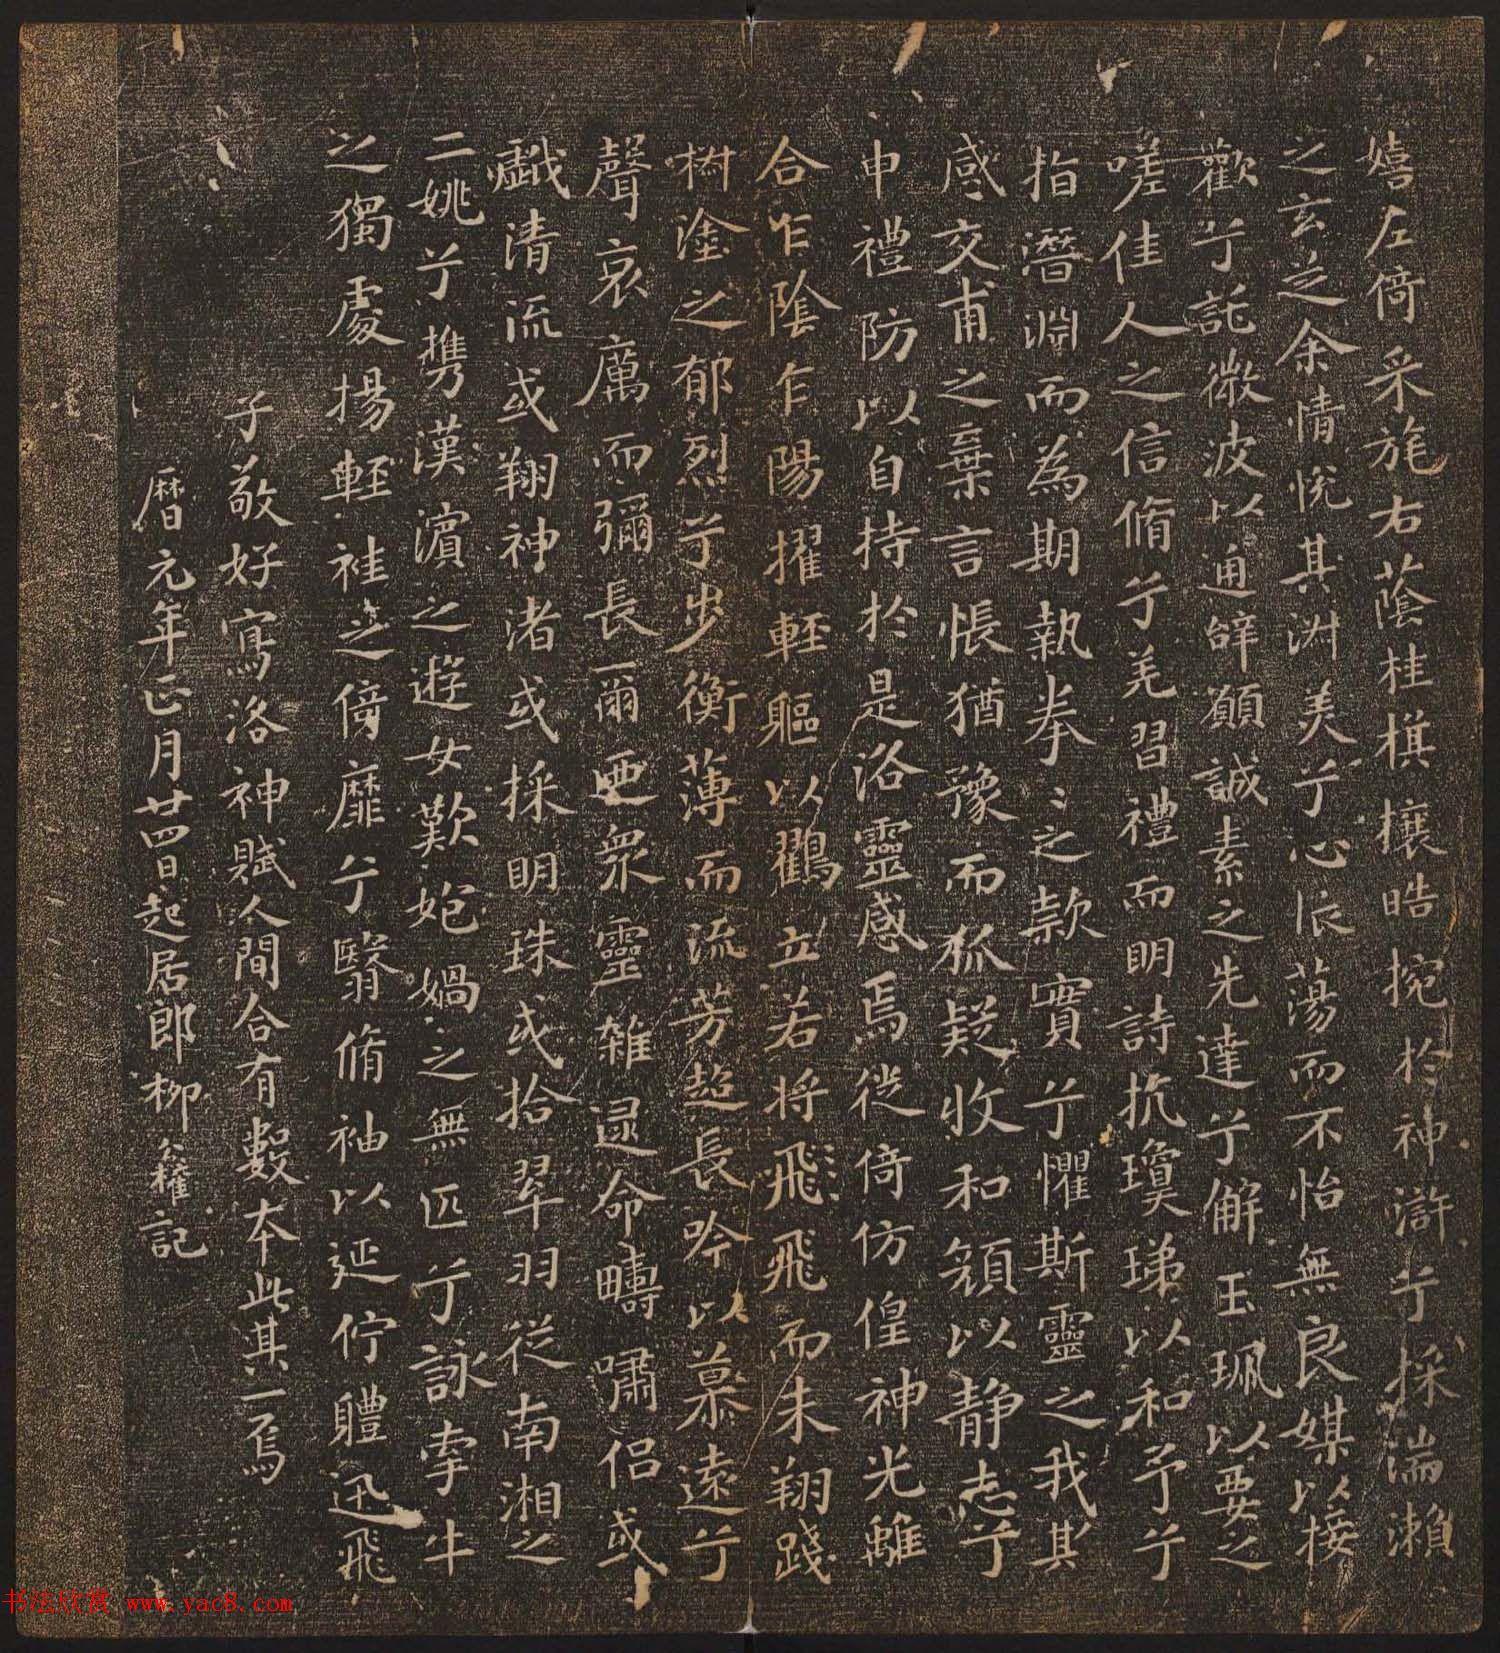 嬉左倚采旄右蔭桂棋攘皓捥於神滸兮採湍瀬
之玄芝余情悅其淑美兮心依蕩而不怡無良媒以接
歡兮託微波以通辭願誠素之先達兮解玉珮以要之
嗟佳人之信脩兮羌習禮而明詩抗瓊珶以和予兮
指潛淵而為期執拳〻之款實兮懼斯靈之我其
感交甫之棄言悵猶豫而狐疑收和顏以静志兮
申禮防以自持於是洛靈感焉徙倚仿偟神光離
合乍陰乍陽擢軽軀以鶴立若将飛飛而未翔踐
椒塗之郁烈兮步衡薄而流芳超長吟以慕遠兮
聲哀厲而彌長爾迺眾靈雜遝命疇嘯侣或
戲清流或翔神渚或採明珠或拾翠羽從南湘之
二姚兮攜漢濱之遊女歎妑媧之無匹兮詠牽牛
之獨處揚軽袿之倚靡兮翳脩袖以延佇體迅飛
子敬好寫洛神賦人間合有數本此其一焉
曆元年正月廿四日起居郎柳公權記
书法欣赏 www.yac8.com